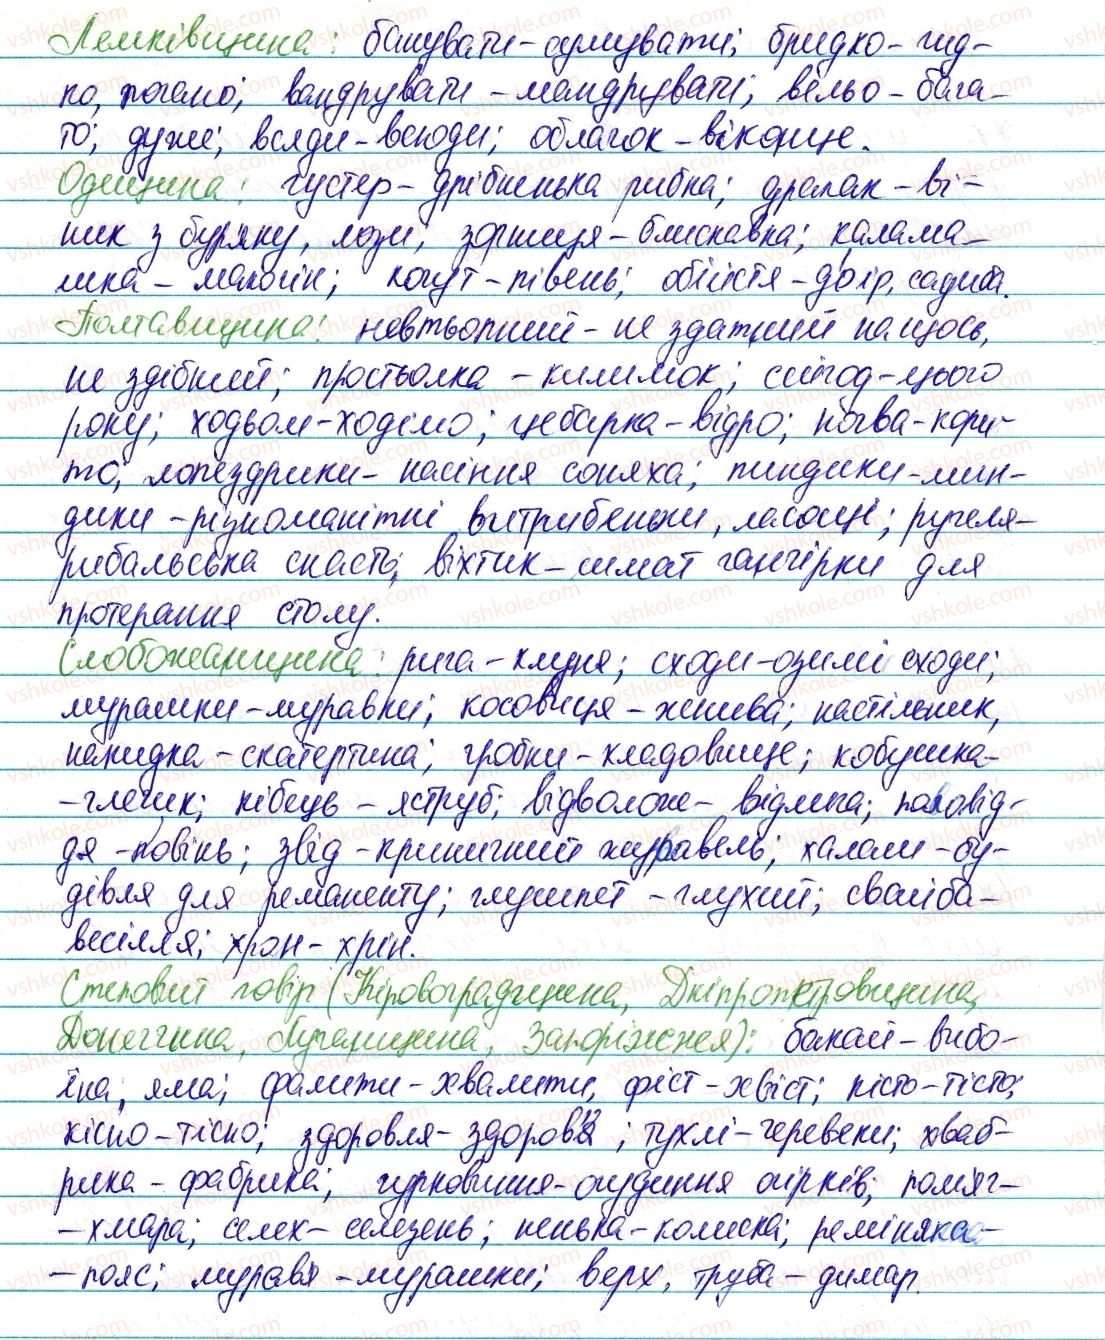 Лемківщина: банувати-сумувати; бридко-гид-
ко, погано; вандрувати-мандрувати; вельо-бага-
то; дуже; всяди-всюди; облачок-віконце.
Одещина: густер-дрібненька рибка; драпак-ві-
ник з бур'яну, лози; зорниця-блискавка; калама-
шка-мокчін; когут-півень; обійстя-двір, садиба.
Полтавщина: невтьопний-не здатний на щось,
не здібний; простьолка-килимок; сейгод-цього
року; ходьом-ходємо; цебарка-відро; ночва-кори-
то; лопездрики-насіння соняха; пиндики-мин-
дики-різноманітні витребеньки, ласощі; ручеля-
рибальська снасть; віхтик-шмат ганчірки для
протерання столу.
Слобожанщина: рига-клуня; сходи-озимі сходи;
мурашки-муравки; косовиця-жнива; настільник,
накидка-скатертина; гробки-кладовище; кобушка-
-глечик; кібець-яструб; відволож-відлига; паповід-
дя-повінь; звід-криничний журавель; халаш-бу-
дівля для реманенту; глушпет-глухий; свайба-
весілля; хрон-хрін.
Степовий говір (Кіровоградщина, Дніпропетровщина,
Донеччина, Луганщина, Запоріжжя): бакай-вибо-
їна, яма; фалити-хвалити, фіст-хвіст; кісто-тісто;
кісно-тісно; здоровля-здоров'я; тухлі-черевеки; хваб-
рика-фабрика; гурковиння-огудиння огірків; поміяг-
-хмара; селех-селезень; ненька-колиска; реміняка-
-пояс; муравя-мурашки; верх, труба-димар.